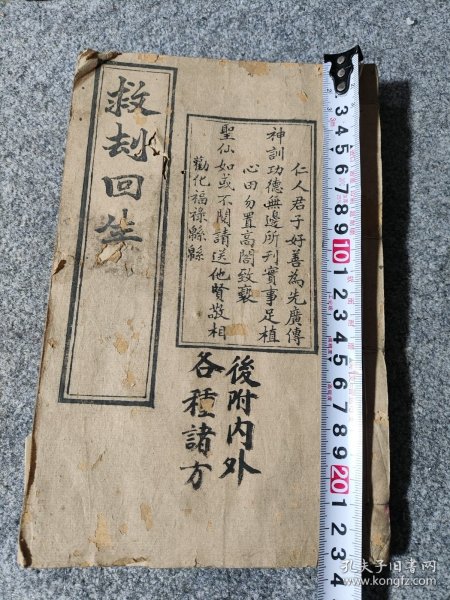 救劫回生
仁人君子好善為先廣傳
神訓功德無邊所刊實事足植
心田勿置高閣致褻
聖仙如或不閱請送他賢敬相
勸化福祿緜緜
後附內外
各種諸方
3 4 5 6 7 8 9 10 1 2 3 4 5 6 7 8 9 20 1 2 3 4
孔夫子旧书网
kongfz.com